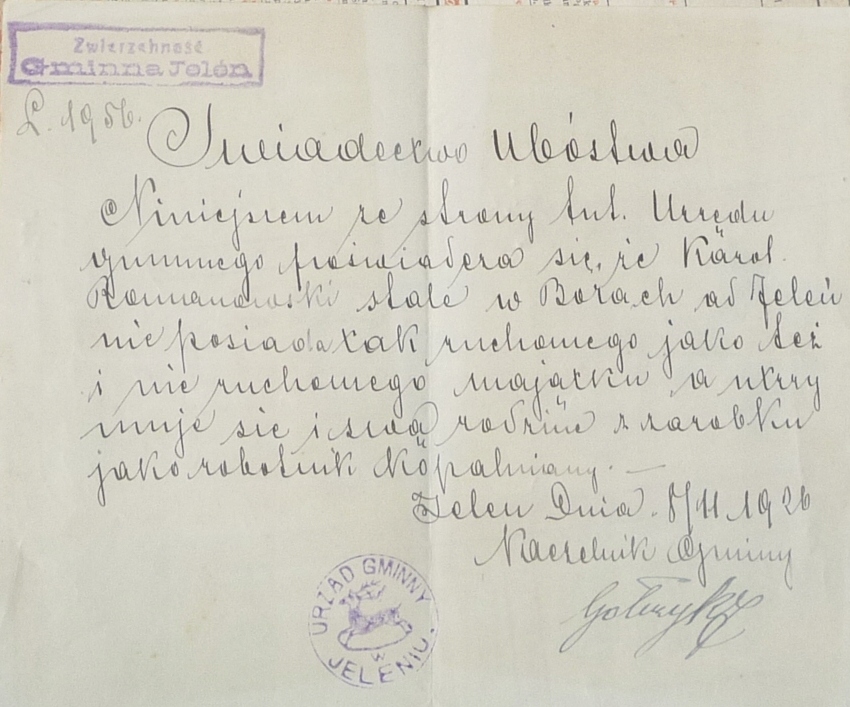 Zwierzchność
Gminna Jeleń
L. 1956.
Swiadectwo Ubóstwa
Niniejszem ze strony tut. Urzędu
gminnego poświadcza się, że Karol
Romanowski stale w Borach ad Jeleń
nie posiada tak ruchomego jako też
i nie ruchomego majątku a utrzy
muje się i swą rodzinę z zarobku
jako robotnik Kopalniany. —
Jeleń Dnia. 8/11 1926
Naczelnik Gminy
URZĄD GMINNY
w
JELENIU.